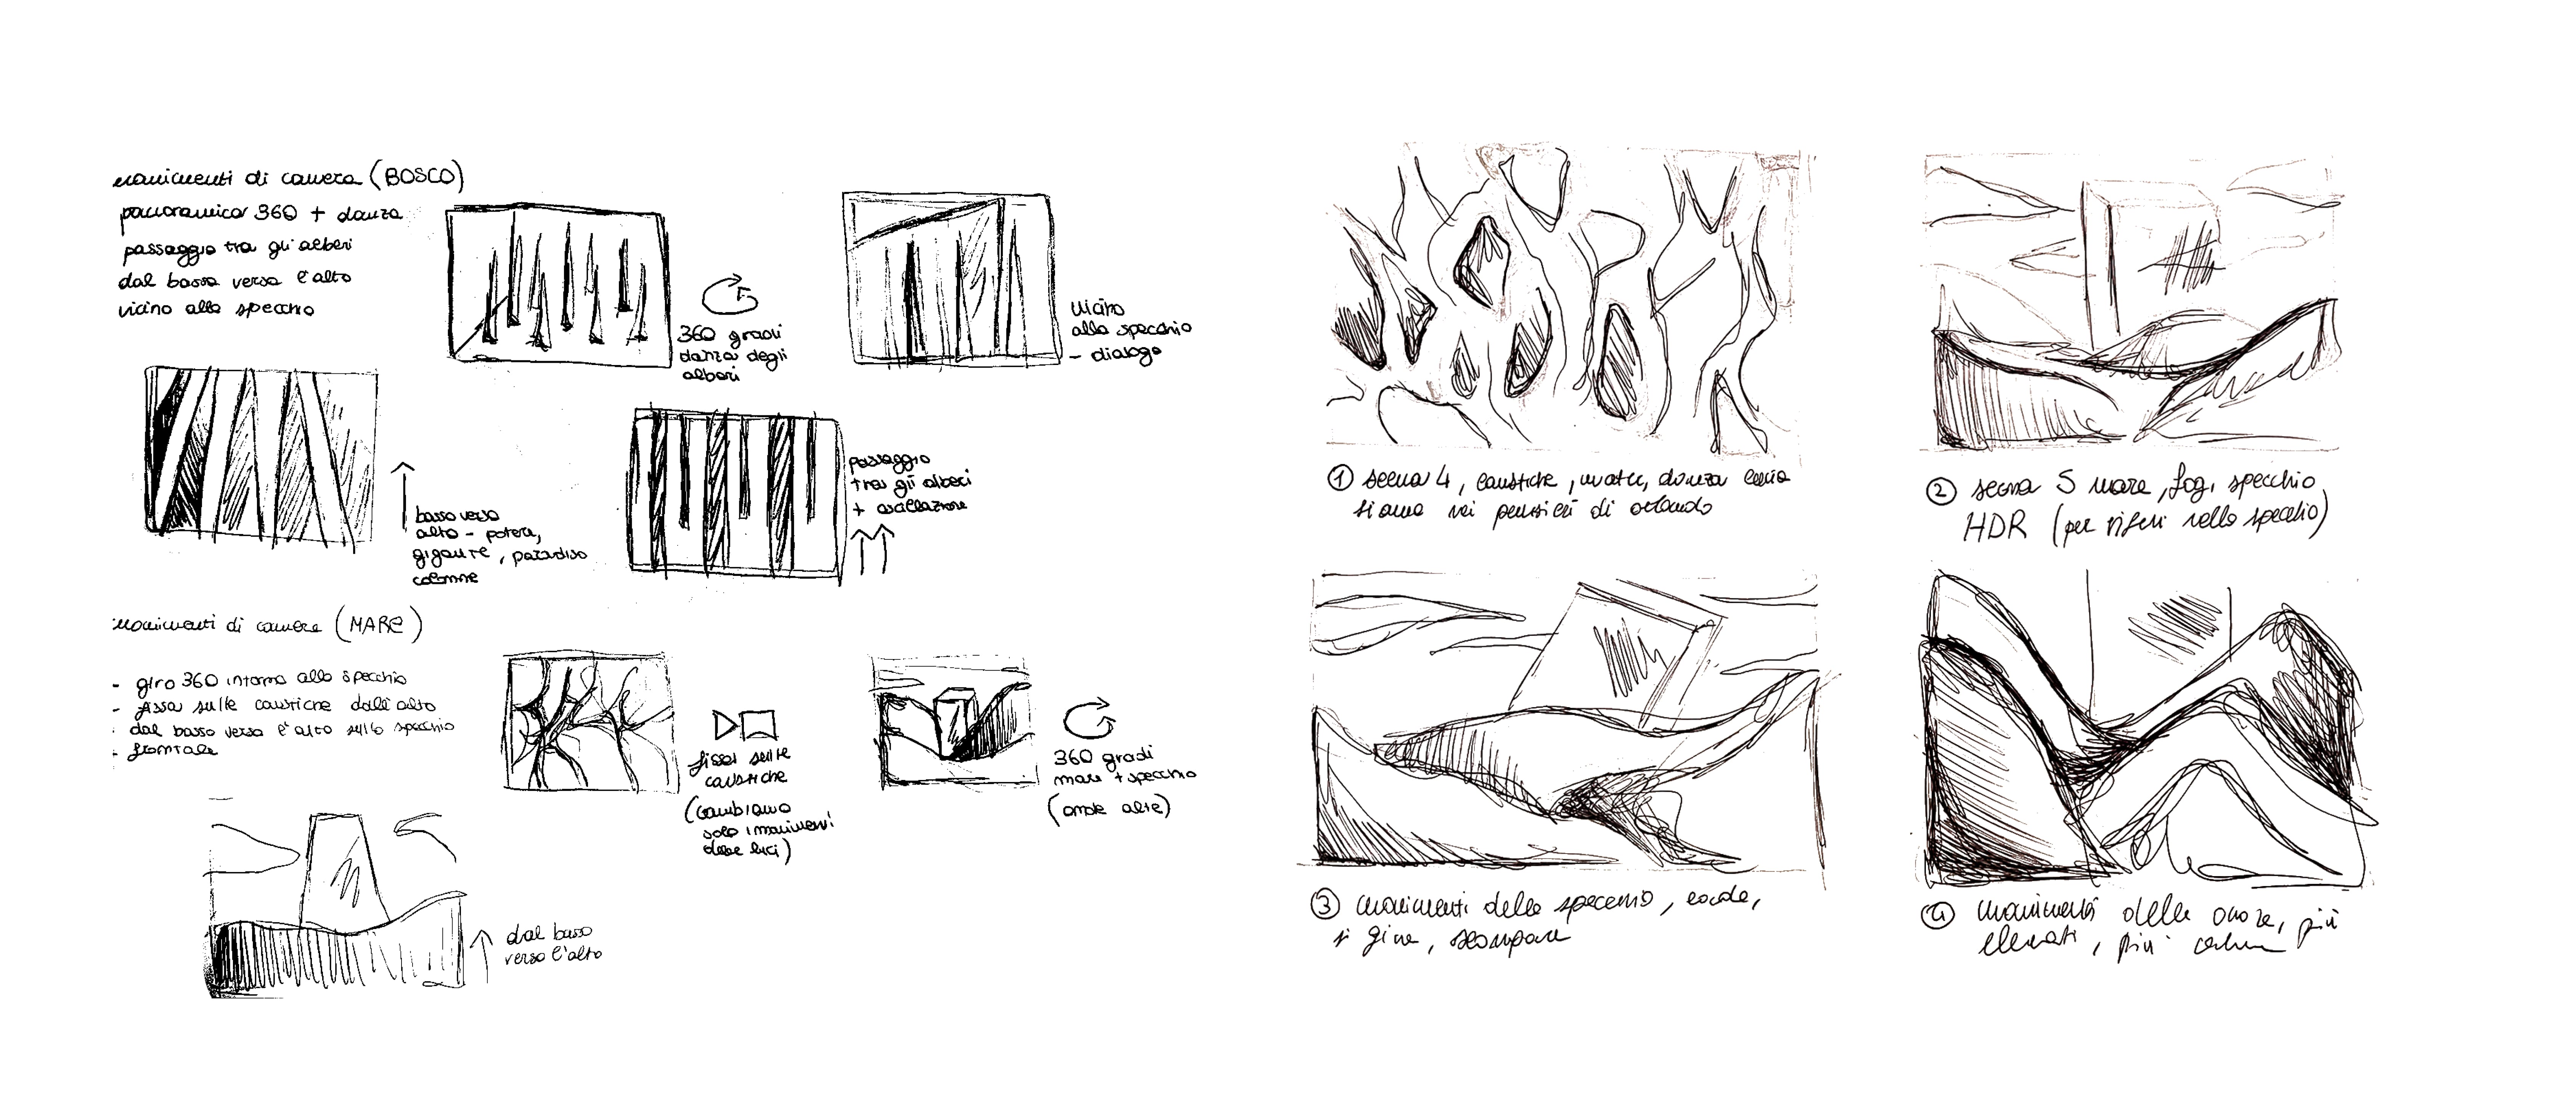 movimenti di camera (BOSCO)
panoramica 360 + danza
passaggio tra gli alberi
dal basso verso l'alto
vicino allo specchio
360 gradi
danza degli
alberi
vicino
allo specchio
- dialogo
basso verso
alto - potere,
gigante, paradiso
colonne
passaggio
tra gli alberi
+ oscillazione
movimenti di camera (MARE)
- giro 360 intorno allo specchio
- fissa sulle caustiche dall'alto
- dal basso verso l'alto sullo specchio
- frontale
fissa sulle
caustiche
(cambiano
solo i movimenti
delle luci)
360 gradi
mare + specchio
(onde alte)
dal basso
verso l'alto
① scena 4, caustiche, water, danza
siamo nei pensieri di orlando
② scena 5 mare, fog, specchio
HDR (per riflessi nello specchio)
③ movimenti dello specchio, cade,
si gira, scompare
④ movimenti delle onde, più
elevati, più